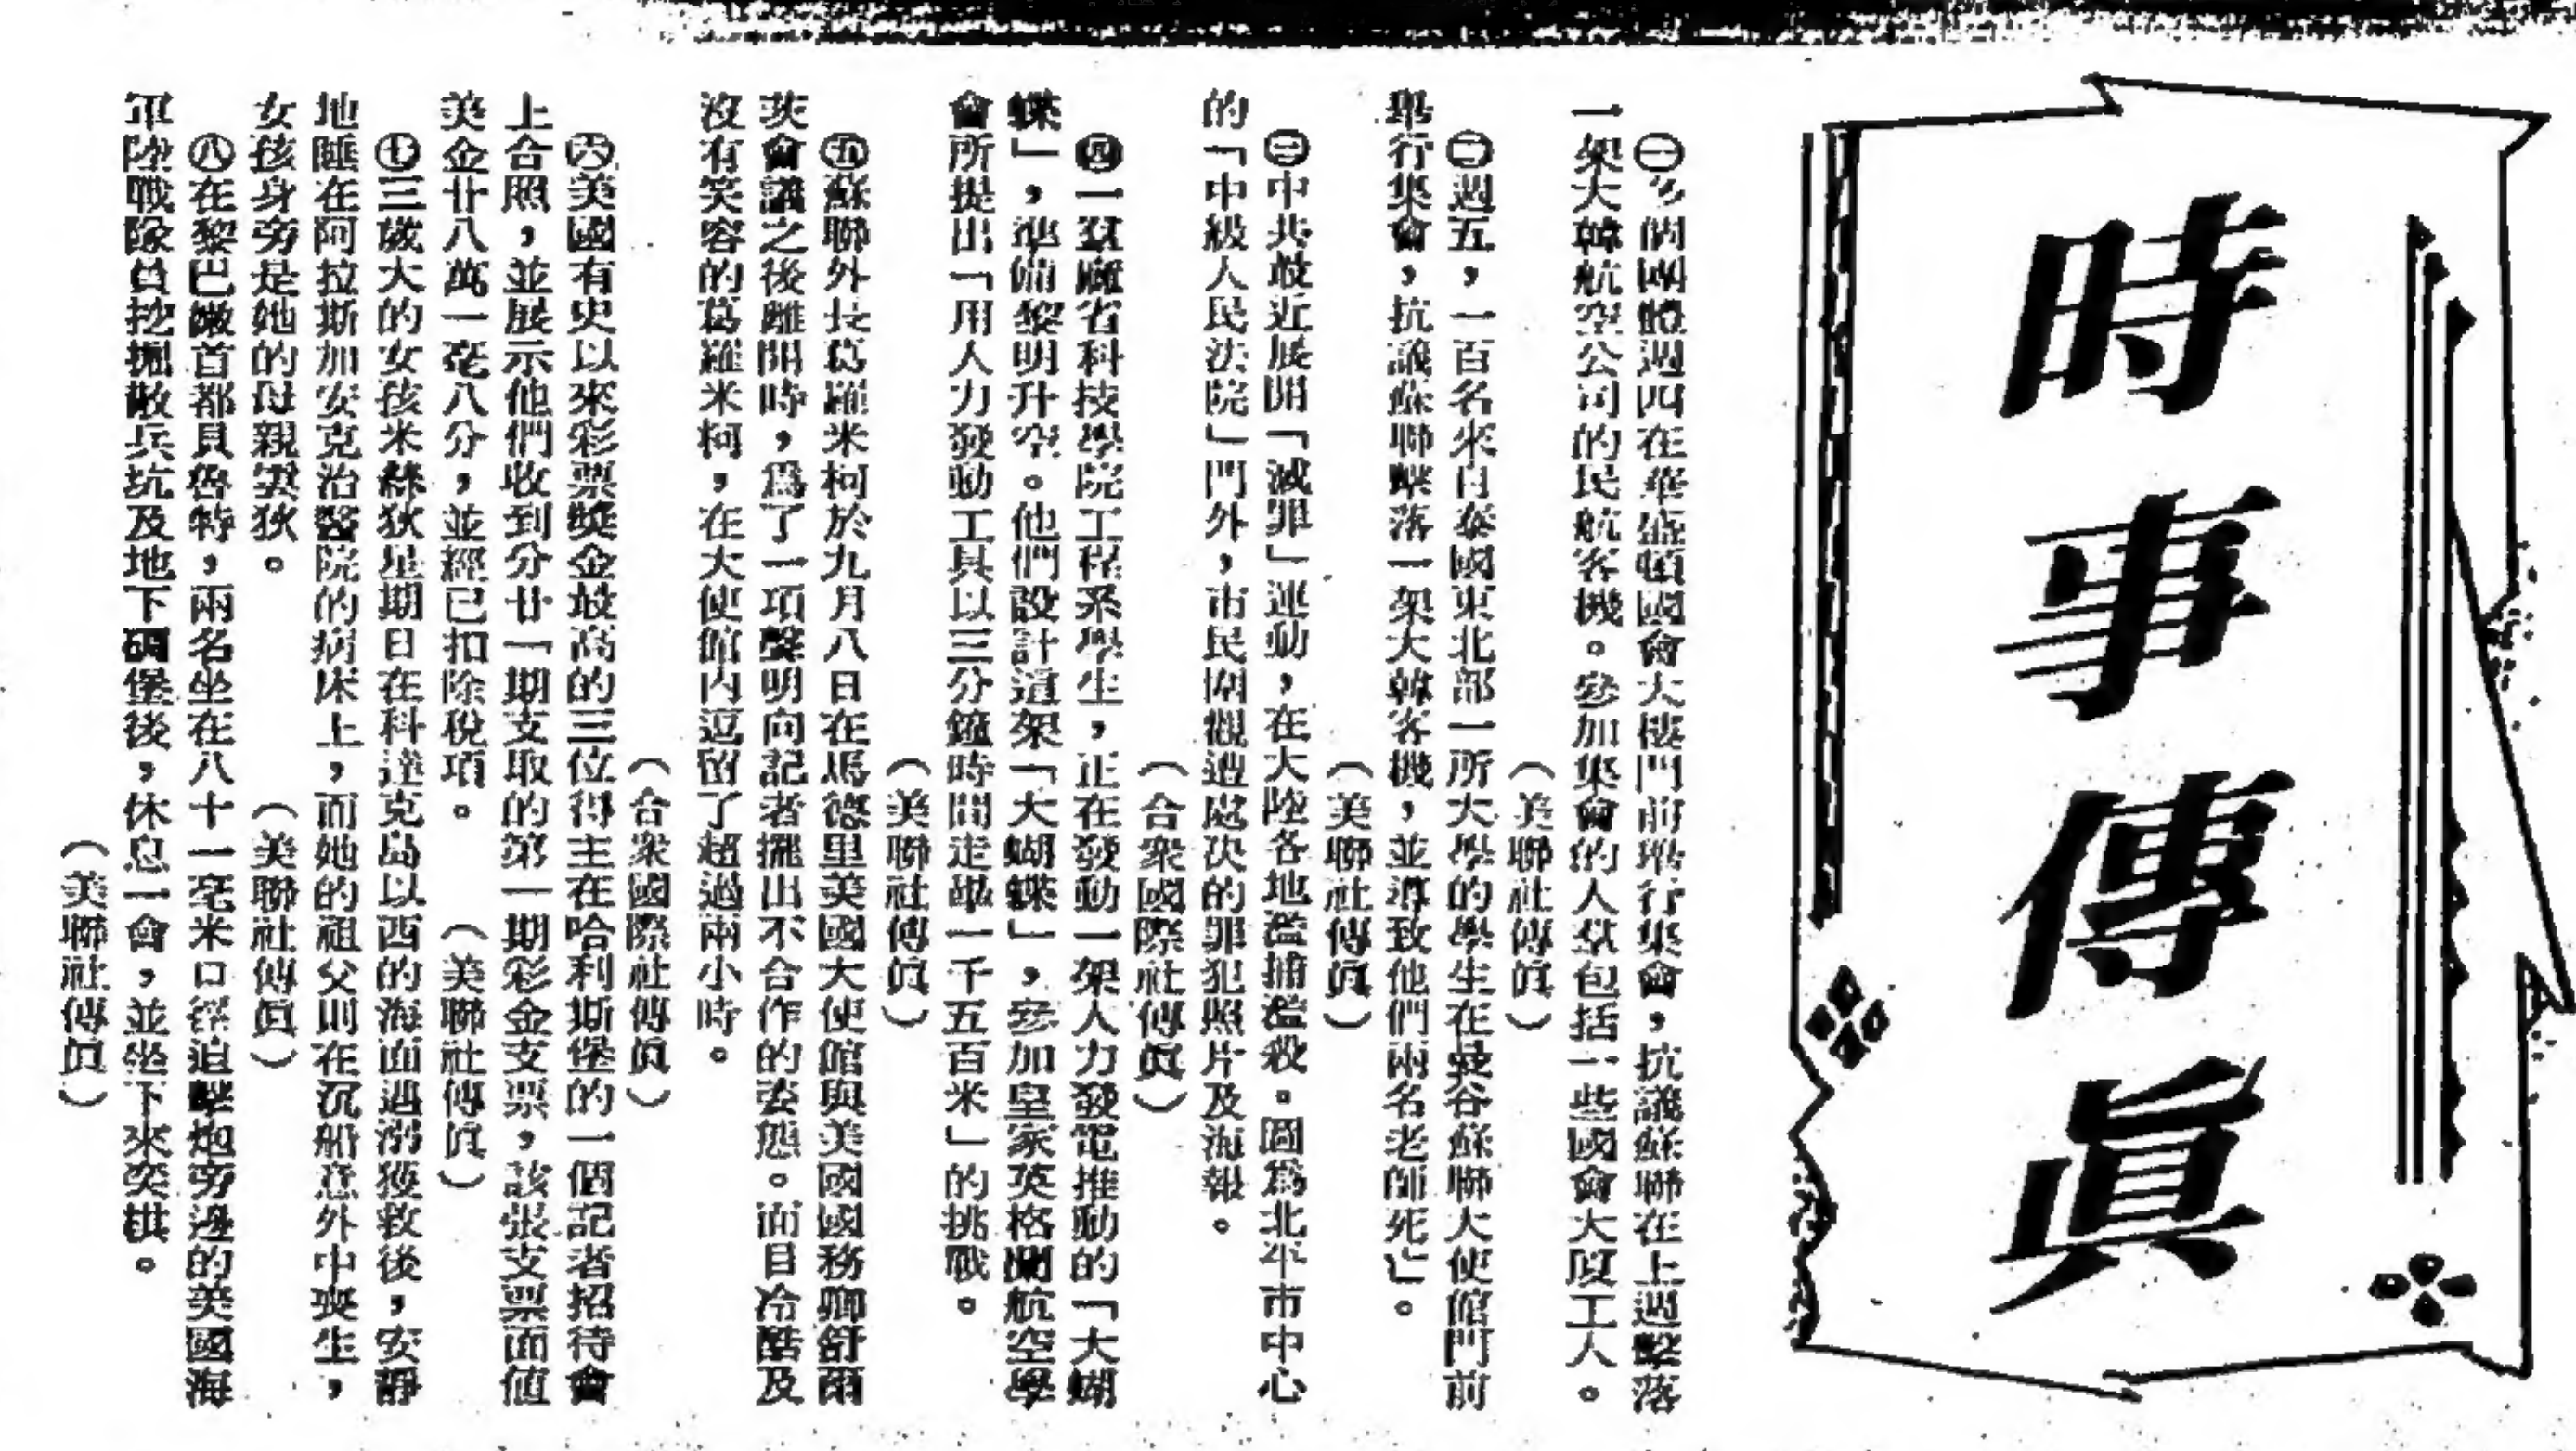 時事傳眞
㊀多個團體週四在華盛頓國會大樓門前舉行集會，抗議蘇聯在上週擊落
一架大韓航空公司的民航客機。參加集會的人羣包括一些國會大厦工人。
（美聯社傳眞）
㊁週五，一百名來自泰國東北部一所大學的學生在曼谷蘇聯大使館門前
舉行集會，抗議蘇聯擊落一架大韓客機，並導致他們兩名老師死亡」。
（美聯社傳眞）
㊂中共最近展開「滅罪」運動，在大陸各地濫捕濫殺。圖爲北平市中心
的「中級人民法院」門外，市民圍觀遭處决的罪犯照片及海報。
（合衆國際社傳眞）
㊃一羣麻省科技學院工程系學生，正在發動一架人力發電推動的「大蝴
蝶」，準備黎明升空。他們設計這架「大蝴蝶」，參加皇家英格蘭航空學
會所提出「用人力發動工具以三分鐘時間走畢一千五百米」的挑戰。
（美聯社傳眞）
㊄蘇聯外長葛羅米柯於九月八日在馬德里美國大使館與美國國務卿舒爾
茨會議之後離開時，爲了一項聲明向記者擺出不合作的姿態。面目冷酷及
沒有笑容的葛羅米柯，在大使館內逗留了超過兩小時。
（合衆國際社傳眞）
㊅美國有史以來彩票獎金最高的三位得主在哈利斯堡的一個記者招待會
上合照，並展示他們收到分廿一期支取的第一期彩金支票，該張支票面值
美金廿八萬一毫八分，並經已扣除稅項。（美聯社傳眞）
㊆三歲大的女孩米絲狄星期日在科達克島以西的海面遇溺獲救後，安靜
地睡在阿拉斯加安克治醫院的病床上，而她的祖父則在沉船意外中喪生，
女孩身旁是她的母親雲狄。（美聯社傳眞）
㊇在黎巴嫩首都貝魯特，兩名坐在八十一毫米口徑迫擊炮旁邊的美國海
軍陸戰隊員挖掘散兵坑及地下碉堡後，休息一會，並坐下來奕棋。
（美聯社傳眞）